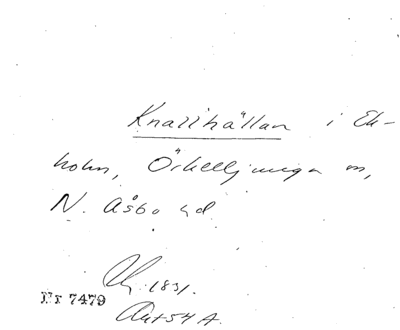 Knallhällan i Ek-
holm, Örkelljunga m,
N. Åsbo hd
1831.
Nr 7479